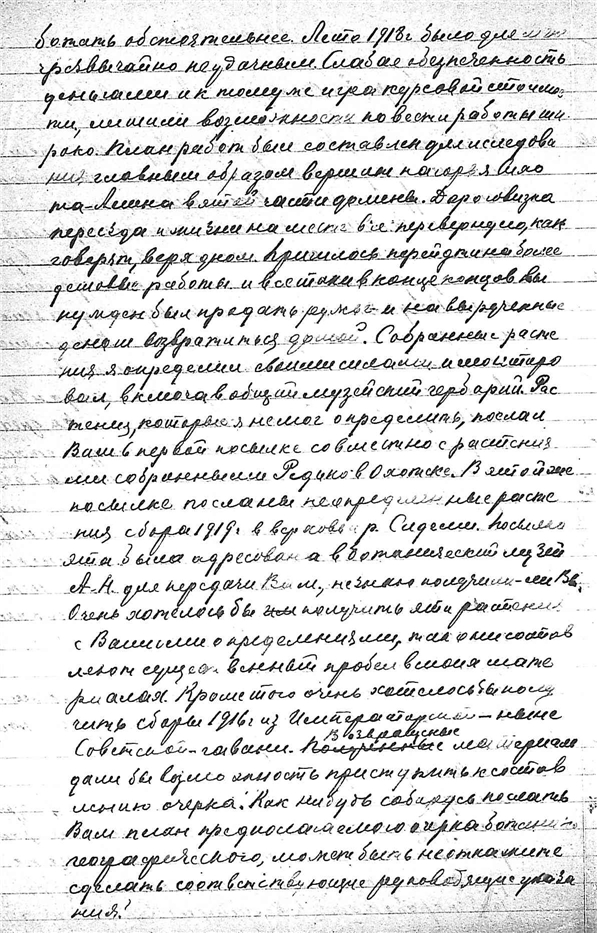 ботать обстоятельнее. Лето 1918 г было для меня
чрезвычайно неудачным Слабая обезпеченность
деньгами и к тому же игра курсовой стоимос
ти, лишили возможности повести работы ши
роко. План работ был составлен для исследова
ния главным образом вершин нагорья Мяо
та-Лина в этой части долины. Дороговизна
переезда и жизни на месте все перевернуло, как
говорят, верх дном. Пришлось перейти на более
дешевые работы и все таки в конце концов вы
нужден был продать ружье и на вырученные
деньги возвратиться домой. Собранные расте
ния я определил своими силами и монтиро
вал, включа в общий музейский гербарий. Рас
тения, которые я не мог определить, послал
Вам в первой посылке совместно с растения
ми собранными Редико в Охотске. В этой же
посылке посланы неопределенные расте
ния сбора 1919 г. в верховьи р. Сидеми. Посылка
эта была адресована в ботанический музей
А.Н. для передачи Вам, не знаю получили-ли Вы.
Очень хотелось бы получить эти растения
с Вашими определениями, так они состав
ляют существенный пробел в моих мате
риалах. Кроме того очень хотелось бы полу
чить сборы 1916 г из Императорской – ныне
Советской-гавани. Возвращенные материалы
дали бы возможность приступить к состав
лению очерка. Как нибудь соберусь послать
Вам план предполагаемого очерка ботанико
географического, может быть не откажите
сделать соответствующие руководящие указа
ния!